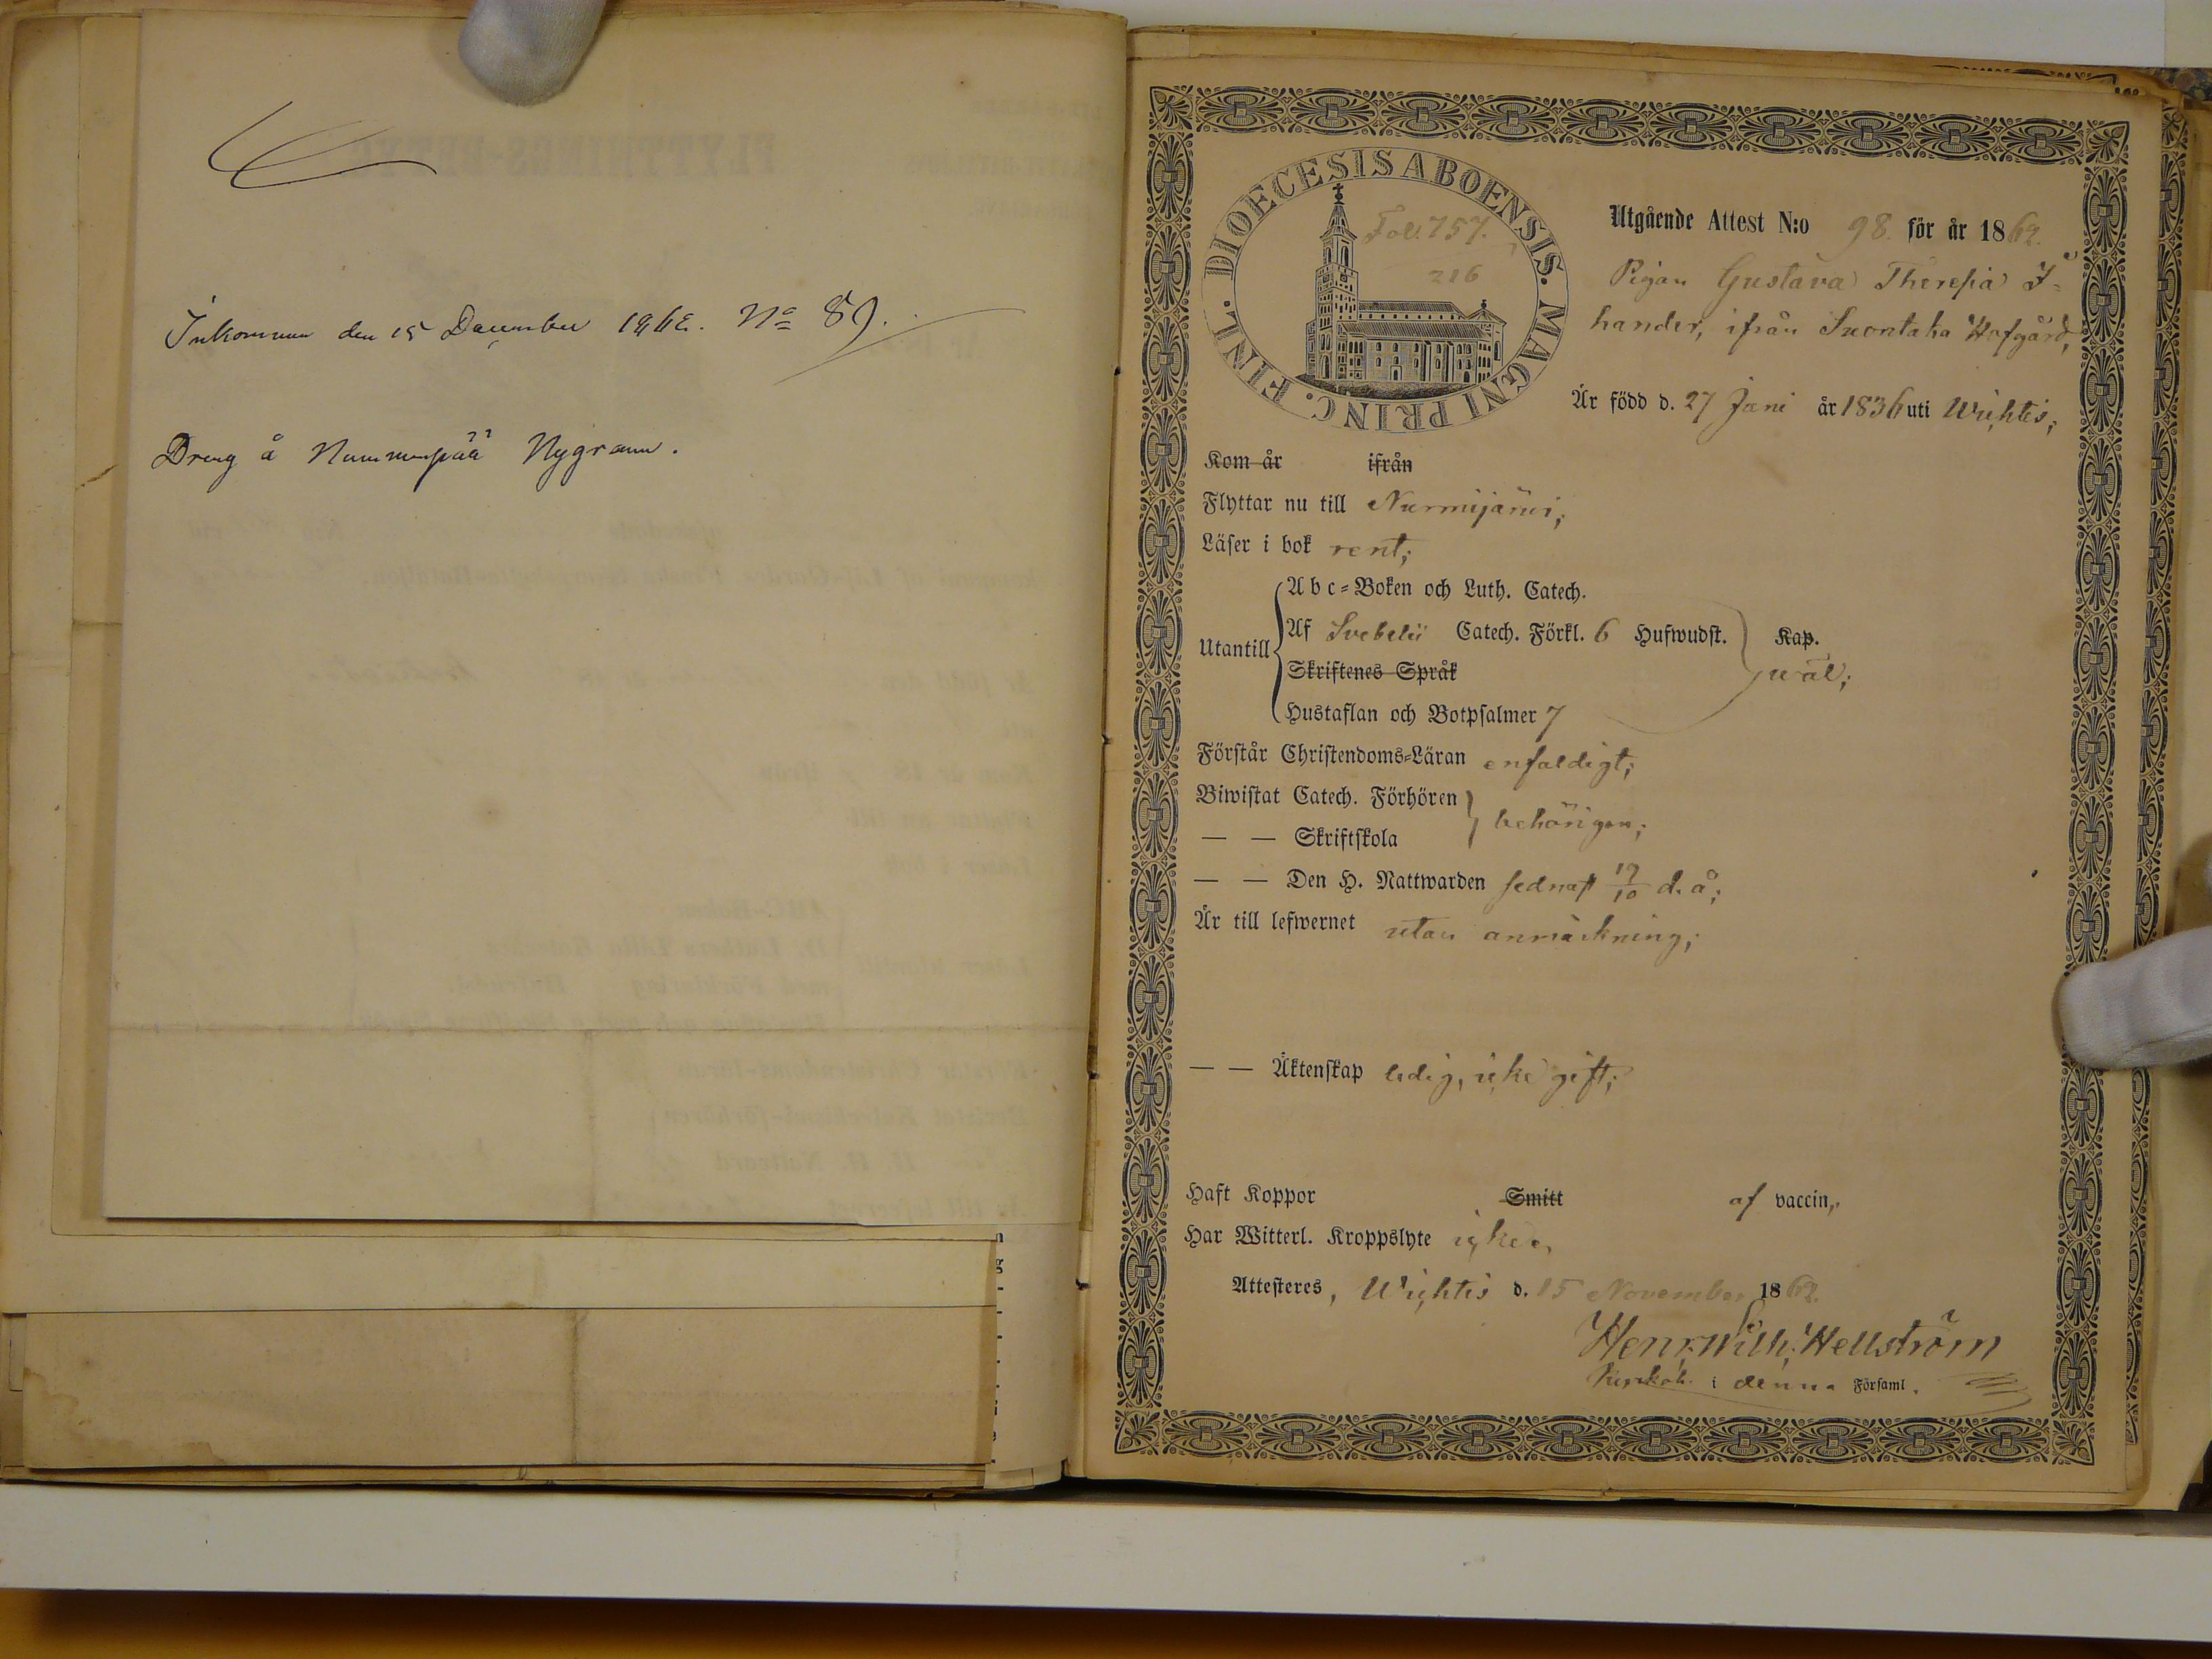 Inkommen den 15 December 1862. No 89.
Dreng å Nummenpää Nygrann.
DIOECESIS ABOENSIS. MAGNI PRINC. FINL.
Fol. 757.
216
Utgående Attest N:o 98. för år 1862.
Pigan Gustava Theresia I-
hander, ifrån Suontaka Hofgård,
Är född d. 27 Juni år 1836 uti Wichtis;
Kom år ifrån
Flyttar nu till Nurmijärvi;
Läser i bok rent;
Utantill
Abc-Boken och Luth. Catech.
Af Svebelii Catech. Förkl. 6 Hufwudst. Kap.
Skriftenes Språk
wäl;
Hustaflan och Botpsalmer 7
Förstår Christendoms-Läran enfaldigt;
Biwistat Catech. Förhören
behörigen;
— — Skriftskola
— — Den H. Nattwarden sednast 19/10 d. å;
Är till lefwernet utan anmärkning;
— — Äktenskap ledig, icke gift;
Haft Koppor Smitt af vaccin,
Har Witterl. Kroppslyte icke.
Attesteres, Wichtis d. 15 November 1862.
Henr. Wilh. Hellström
Kyrkoh. i denna Församl.